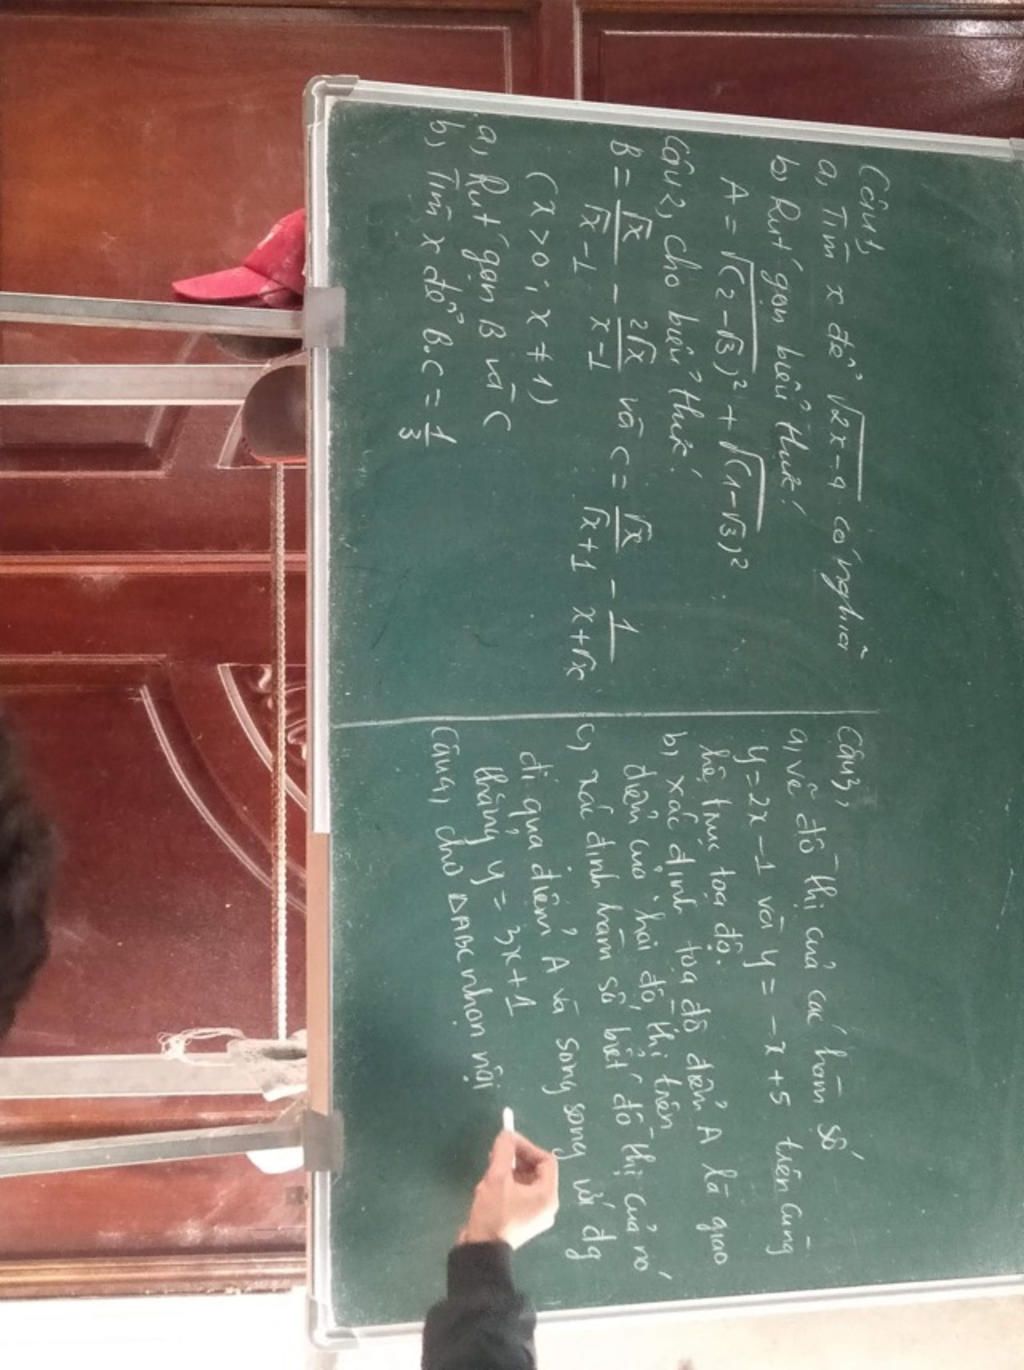 Câu 1,
a, Tìm x để √(2x-4) có nghĩa
b, Rút gọn biểu thức:
A = √((2-√3)²) + √((1-√3)²)
Câu 2, Cho biểu thức:
B = √x/(√x-1) - 2√x/(x-1) và C = √x/(√x+1) - 1/(x+√x)
(x>0; x≠1)
a, Rút gọn B và C
b, Tìm x để B.C = 1/3
Câu 3,
a, vẽ đồ thị của các hàm số
y = 2x-1 và y = -x+5 trên cùng
hệ trục tọa độ.
b, xác định tọa độ điểm A là giao
điểm của hai đồ thị trên
c, xác định hàm số biết đồ thị của nó
đi qua điểm A và song song với đg
thẳng y = 3x+1
Câu 4, cho ΔABC nhọn nội